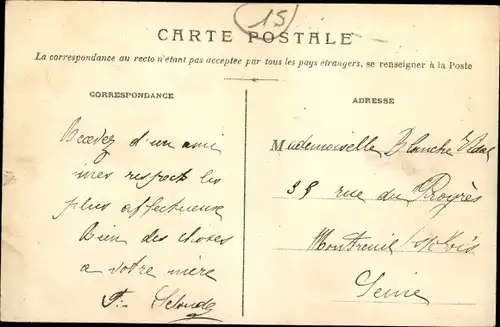 15
CARTE POSTALE
La correspondance au recto n'étant pas acceptée par tous les pays étrangers, se renseigner à la Poste
CORRESPONDANCE
d'un ami
mes respects les
plus affectueux
Bien des choses
a votre mère
ADRESSE
Mademoiselle Blanche
38 rue du Progrès
Montreuil s/Bois
Seine